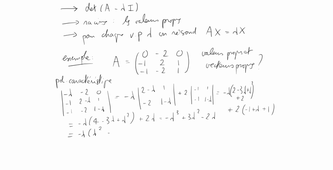 → det (A - λI)
→ racines : les valeurs propres
→ pour chaque v p λ on résoud AX = λX
exemple A = ( 0 -2 0 ; -1 2 1 ; -1 -2 1 ) valeurs propres et vecteurs propres?
pol caractéristique
| -λ -2 0 ; -1 2-λ 1 ; -1 -2 1-λ | = -λ | 2-λ 1 ; -2 1-λ | + 2 | -1 1 ; -1 1-λ | = -λ(2-3λ+λ²
+2)
+ 2(-1+λ+1)
= -λ(4-3λ+λ²) + 2λ = -λ³ + 3λ² - 2λ
= -λ(λ²